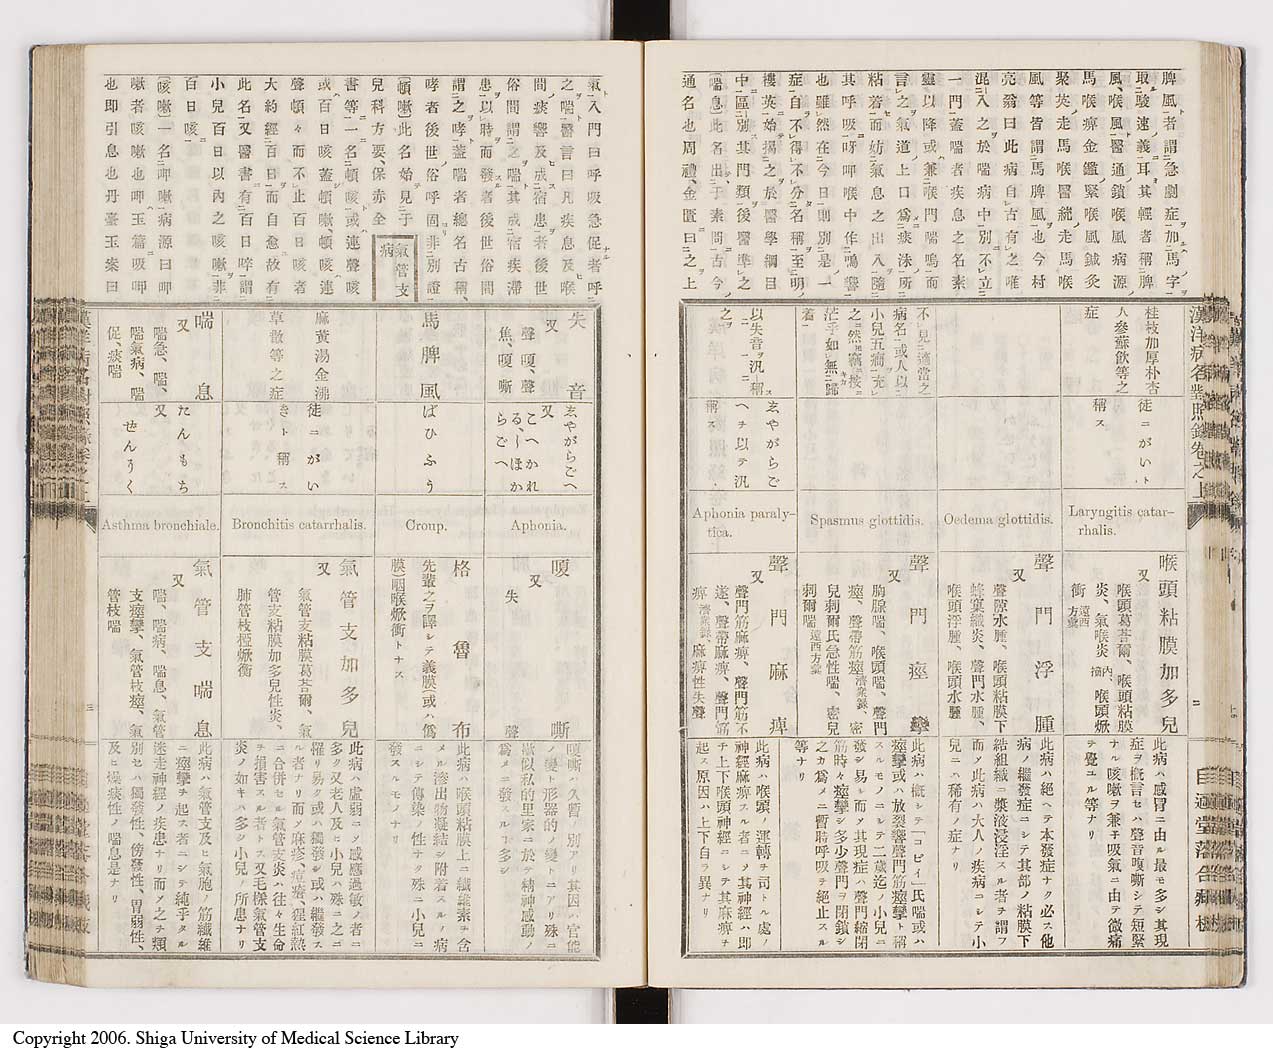 脾風者謂急劇症加馬字
取駿速義耳其輕者稱脾
風、喉風醫通鎖喉風病源
馬喉痺金鑑緊喉風鍼灸
聚英走馬喉醫統走馬喉
風等皆謂馬脾風也今村
亮翁曰此病自古有之唯
混入之於喘病中別不立
一門蓋喘者疾息之名素
靈以降或兼喉門喘鳴而
言之氣道上口爲痰沫所
粘着而妨氣息之出入隨
其呼吸呀呷喉中作鳴響
也雖然在今日則別是一
症自不得不分名稱至明
樓英始揭之於醫學綱目
中區別其門類後醫準之
〔喘息〕此名出于素問古今
通名也周禮、金匱曰之上
漢洋病名對照錄卷之上
桂枝加厚朴杏
人參蘇飮等之
症
徒ニがいト
稱ス
Laryngitis catar-
rhalis.
喉頭粘膜加多兒
又
喉頭葛荅爾、喉頭粘膜
炎、氣喉炎 喉頭焮
衝 遠西方彙
此病ハ感冒ニ由ル最モ多シ其現
症ヲ概言セハ聲音嗄嘶シテ短緊
ナル咳嗽ヲ兼子吸氣ニ由テ微痛
ヲ覺ユル等ナリ
Oedema glottidis.
聲門浮腫
又
聲隙水腫、喉頭粘膜下
蜂窠織炎、聲門水腫、
喉頭浮腫、喉頭水腫
此病ハ絕ヘテ本發症ナク必ス他
病ノ繼發症ニシテ其部ノ粘膜下
結組織ニ漿液浸淫スル者ヲ謂フ
而メ此病ハ大人ノ疾病ニシテ小
兒ニハ稀有ノ症ナリ
不見適當之
病名或人以
小兒五癇充
之然竊按
茫乎如無歸
着
Spasmus glottidis.
聲門痙攣
又
胸腺喘、喉頭喘、聲門
痙、聲帶筋痙濟衆錄、密
兒刺爾氏急性喘、密兒
刺爾喘遠西方彙
此病ハ概シテ「コピイ」氏喘或ハ
痙攣或ハ放裂響聲門筋痙攣ト稱
スルモノニシテ二歲迄ノ小兒ニ
發シ易シ而メ其現症ハ聲門縮閉
筋時々痙攣シ多少聲門ヲ閉鎖シ
之カ爲メニ暫時呼吸ヲ絕止スル
等ナリ
以失音汎稱
之
ゑやがらご
ヘヲ以テ汎
稱ス
Aphonia paraly-
tica.
聲門麻痺
又
聲門筋麻痺、聲門筋不
遂、聲帶麻痺、聲門筋
痺濟衆錄、麻痺性失聲
此病ハ喉頭ノ運轉ヲ司トル處ノ
神經麻痺スル者ニヲ其神經ハ即
チ上下喉頭神經ニシテ其麻痺ヲ
起ス原因ハ上下自ラ異ナリ
二
上
適堂落合藏板
氣入門曰呼吸急促者呼
之喘醫言曰凡疾息及喉
間痰響及成宿患者後世
俗間謂之喘其成宿疾滯
患以時而發者後世俗間
謂之哮蓋喘者總名古稱、
哮者後世ノ俗呼固非別證
〔頓嗽〕此名始見于
兒科方要、保赤全
書等一名頓咳或連聲咳
或百日咳蓋頓嗽、頓咳連
聲頓々而不止百日咳者
大約經百日而自愈故有
此名又醫書有百日啐謂
小兒百日以內之咳嗽非
百日咳
〔咳嗽〕一名呷嗽病源曰呷
嗽者咳嗽也呷玉篇吸呷
也即引息也丹臺玉案曰
氣管支病
失音
又
聲嗄、聲
焦、嗄嘶
ゑやがらごへ
又
こへかれ
る、しほか
らごへ
Aphonia.
嗄嘶
又
失聲
嗄嘶ハ久暫ノ別アリ其因ハ官能
ノ變ト形器的ノ變トニアリ殊ニ
攧似私的里家ニ於テ精神感動ノ
爲メニ發スル丁多シ
馬脾風
ばひふう
Croup.
格魯布
先輩之ヲ譯シテ義膜(或ハ僞
膜)咽喉焮衝トナス
此病ハ喉頭粘膜上ニ纖維素ヲ含
メル滲出物凝結シ附着スルノ病
ニシテ傳染ノ性ナク殊ニ小兒ニ
發スルモノナリ
麻黃湯金沸
草散等之症
徒ニがい
きト稱ス
Bronchitis catarrhalis.
氣管支加多兒
又
氣管支粘膜葛荅爾、氣
管支粘膜加多兒性炎、
肺管枝極焮衝
此病ハ虛弱ニメ感應過敏ノ者ニ
多ク又老人及ヒ小兒ハ殊ニ之ニ
罹リ易ク或ハ獨發シ或ハ繼發ス
ル者ナリ而メ麻疹、痘瘡、猩紅熱
ニ合併セル氣管支炎ハ往々生命
ヲ損害スル者トス又毛樣氣管支
炎ノ如キハ多シ小兒ノ所患ナリ
喘息
又
喘急、喘、
喘氣病、喘
促、痰喘
たんもち
又
ぜんそく
Asthma bronchiale.
氣管支喘息
又
喘、喘病、喘息、氣管
支痙攣、氣管枝痙、氣
管枝喘
此病ハ氣管支及ヒ氣胞ノ筋纖維
ニ痙攣ヲ起ス者ニシテ純乎タル
迷走神經ノ疾患ナリ而メ之ヲ類
別セハ獨發性、傍發性、胃弱性、
及ヒ燥痰性ノ喘息是ナリ
三
Copyright 2006. Shiga University of Medical Science Library